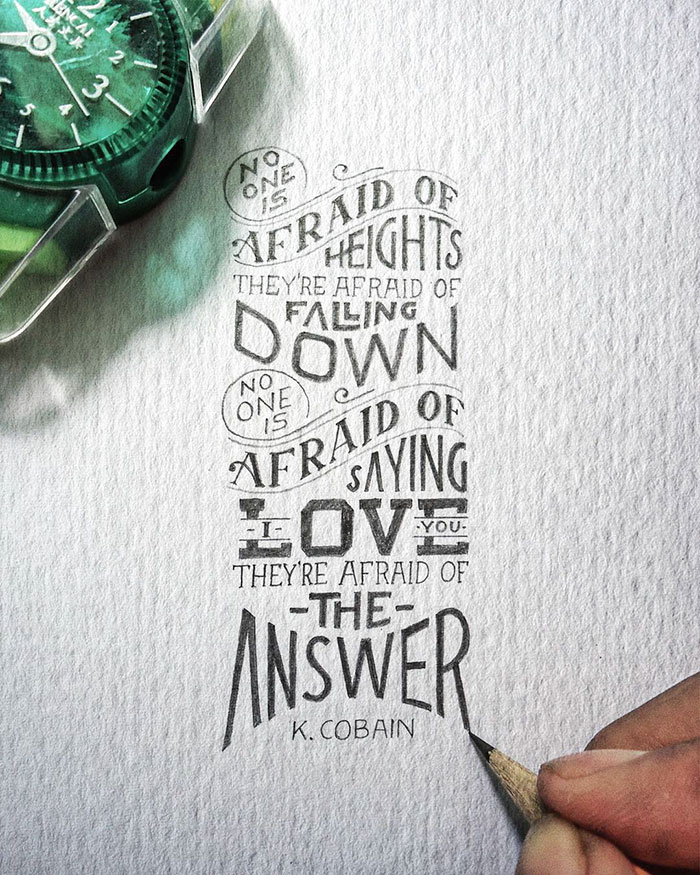 NO
ONE
IS
AFRAID OF
HEIGHTS
THEY'RE AFRAID OF
FALLING
DOWN
NO
ONE
IS
AFRAID OF
SAYING
I LOVE YOU
THEY'RE AFRAID OF
-THE-
ANSWER
K. COBAIN
2
1
2
3
4
5